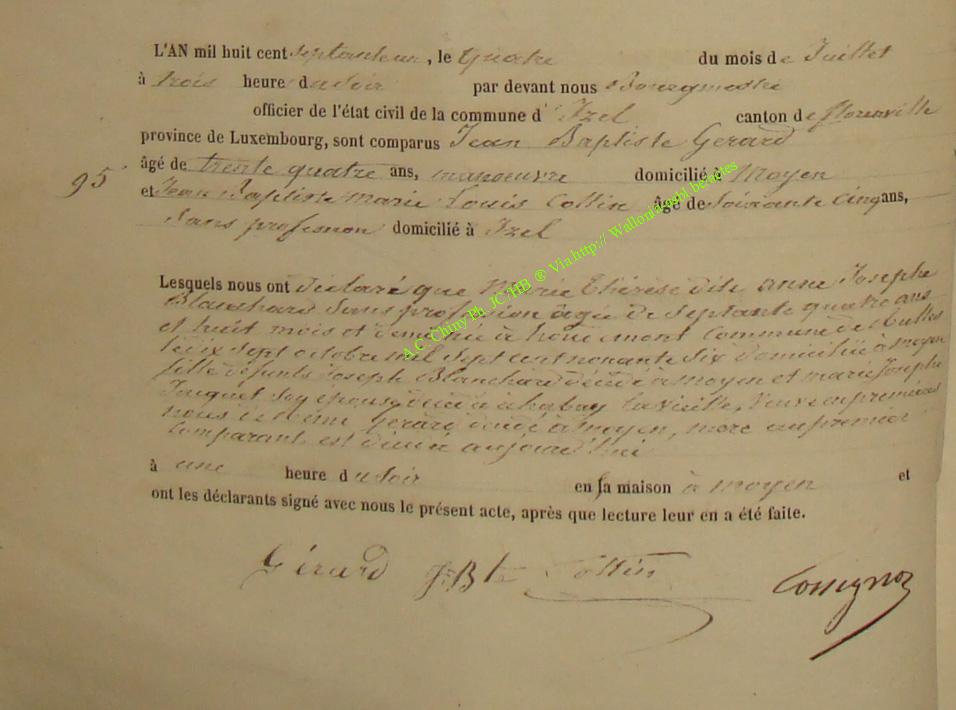 L'AN mil huit cent septanteun, le Quatre du mois de Juillet
à trois heure du soir par devant nous Bourgmestre
officier de l'état civil de la commune d' Izel canton de florenville
province de Luxembourg, sont comparus Jean Baptiste Gerard
âgé de trente quatre ans, manoeuvre domicilié à Moyen
95 et Jean Baptiste marie Louis Collin âgé de soixante cinq ans,
sans profession domicilié à Izel
Lesquels nous ont déclaré que Marie Thérèse dite anne Josephe
Blanchard sans profession âgée de septante quatre ans
et huit mois et demi née à commune de
sept octobre mil sept cent nonante six domiciliée à moyen
fille defunts Joseph Blanchard décédé à moyen et marie Joseph
son épouse décédée à habay la vieille, veuve en premières
Gerard décédé à moyen, mere au premier
comparant est décédée aujourd'hui
à une heure du soir en sa maison à moyen et
ont les déclarants signé avec nous le présent acte, après que lecture leur en a été faite.
Gérard JBte Collin Cossignoz
A.C. Chiny Ph. JC HB ® Via http:// Wallonie